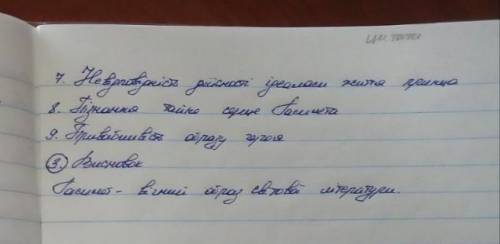 7. Невідповідність дійсності ідеалам життя принца
8. Пізнання тайни серце Гамлета
9. Привабливість образу героя
3. Висновок
Гамлет - вічний образ світової літератури.